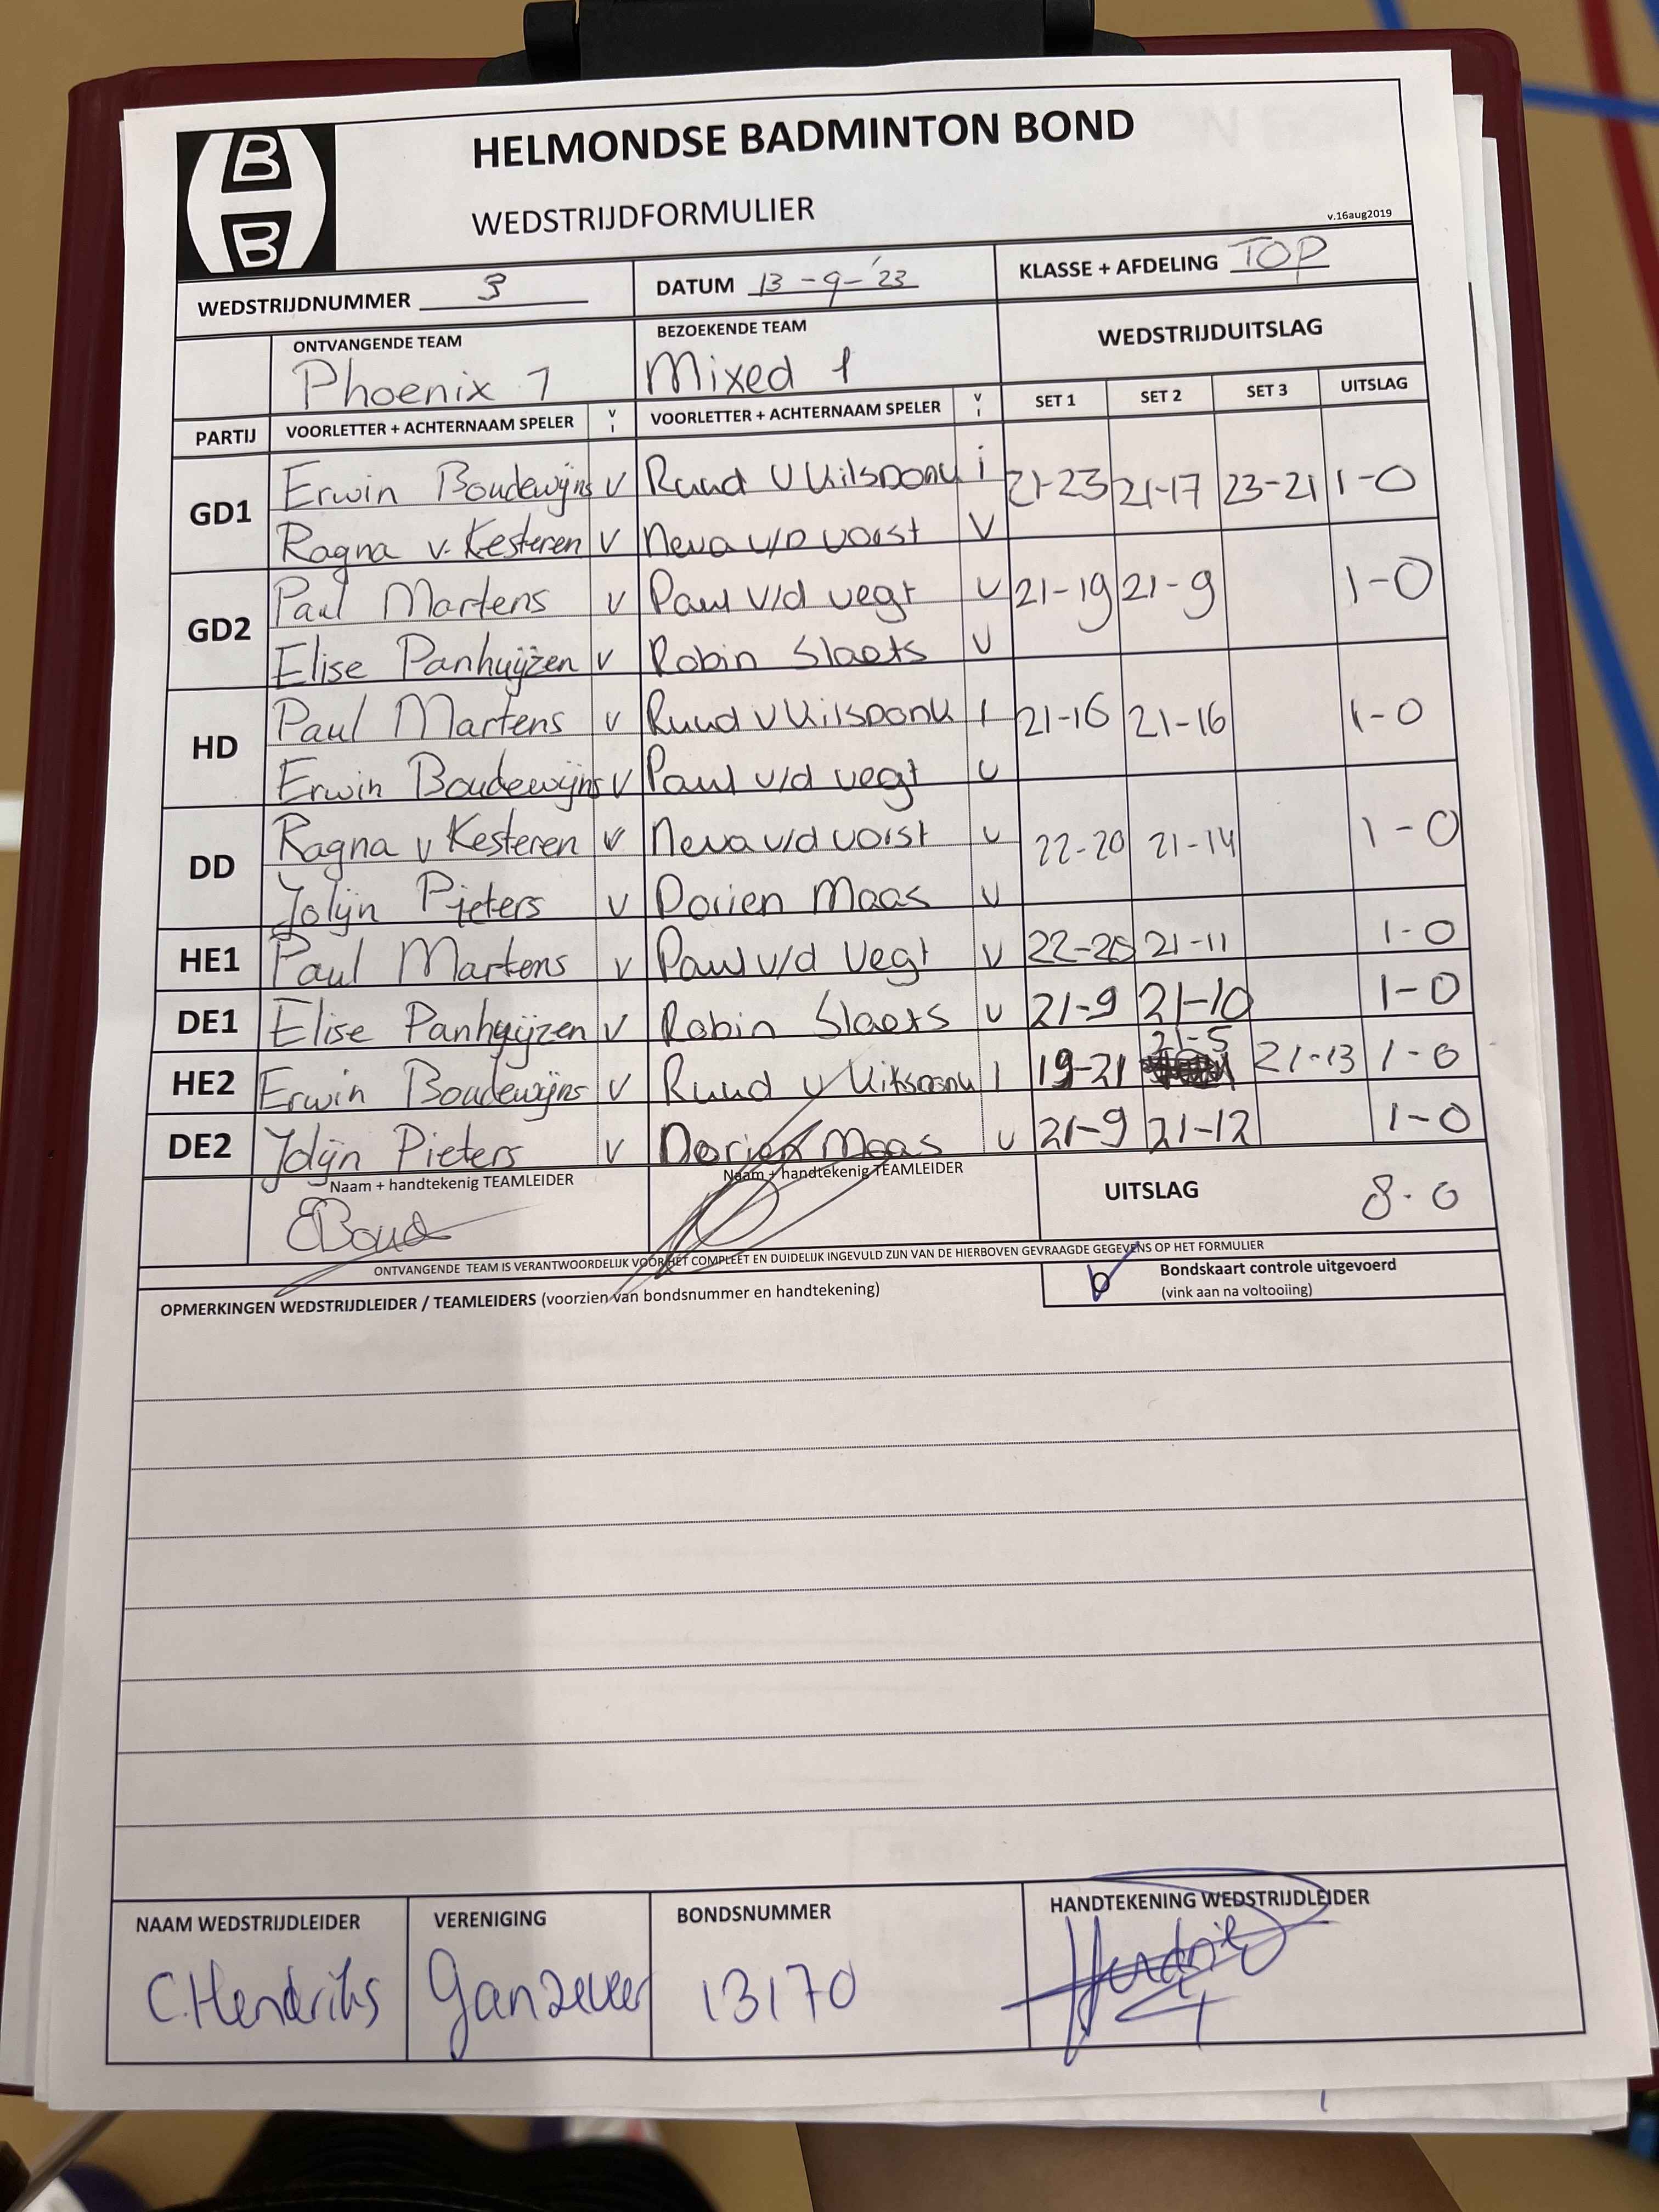 B
B
HELMONDSE BADMINTON BOND
WEDSTRIJDFORMULIER
v.16aug2019
WEDSTRIJDNUMMER 3 DATUM 13-9-'23 KLASSE + AFDELING TOP
ONTVANGENDE TEAM BEZOEKENDE TEAM WEDSTRIJDUITSLAG
Phoenix 1 Mixed 1
PARTIJ VOORLETTER + ACHTERNAAM SPELER V I VOORLETTER + ACHTERNAAM SPELER V I SET 1 SET 2 SET 3 UITSLAG
GD1 Erwin Boudewijns v Ruud v i 21-23 21-17 23-21 1-0
Ragna v. Kesteren v Neva v/d vorst v
GD2 Paul Martens v Paul v/d vegt v 21-19 21-9 1-0
Elise Panhuijzen v Robin Slaets v
HD Paul Martens v Ruud v I 21-16 21-16 1-0
Erwin Boudewijns v Paul v/d vegt v
DD Ragna v Kesteren v Neva v/d vorst v 22-20 21-14 1-0
Jolijn Pieters v Dorien Maas v
HE1 Paul Martens v Paul v/d Vegt v 22-20 21-11 1-0
DE1 Elise Panhuijzen v Robin Slaets v 21-9 21-10 1-0
HE2 Erwin Boudewijns v Ruud v I 19-21 21-5 21-13 1-0
DE2 Jolijn Pieters v Dorien Maas v 21-9 21-12 1-0
Naam + handtekenig TEAMLEIDER Naam + handtekenig TEAMLEIDER UITSLAG 8-0
EBoud
ONTVANGENDE TEAM IS VERANTWOORDELIJK VOOR HET COMPLEET EN DUIDELIJK INGEVULD ZIJN VAN DE HIERBOVEN GEVRAAGDE GEGEVENS OP HET FORMULIER
OPMERKINGEN WEDSTRIJDLEIDER / TEAMLEIDERS (voorzien van bondsnummer en handtekening)
Bondskaart controle uitgevoerd
(vink aan na voltooiing)
NAAM WEDSTRIJDLEIDER VERENIGING BONDSNUMMER HANDTEKENING WEDSTRIJDLEIDER
C.Hendriks Ganzeveer 13170 Hendriks